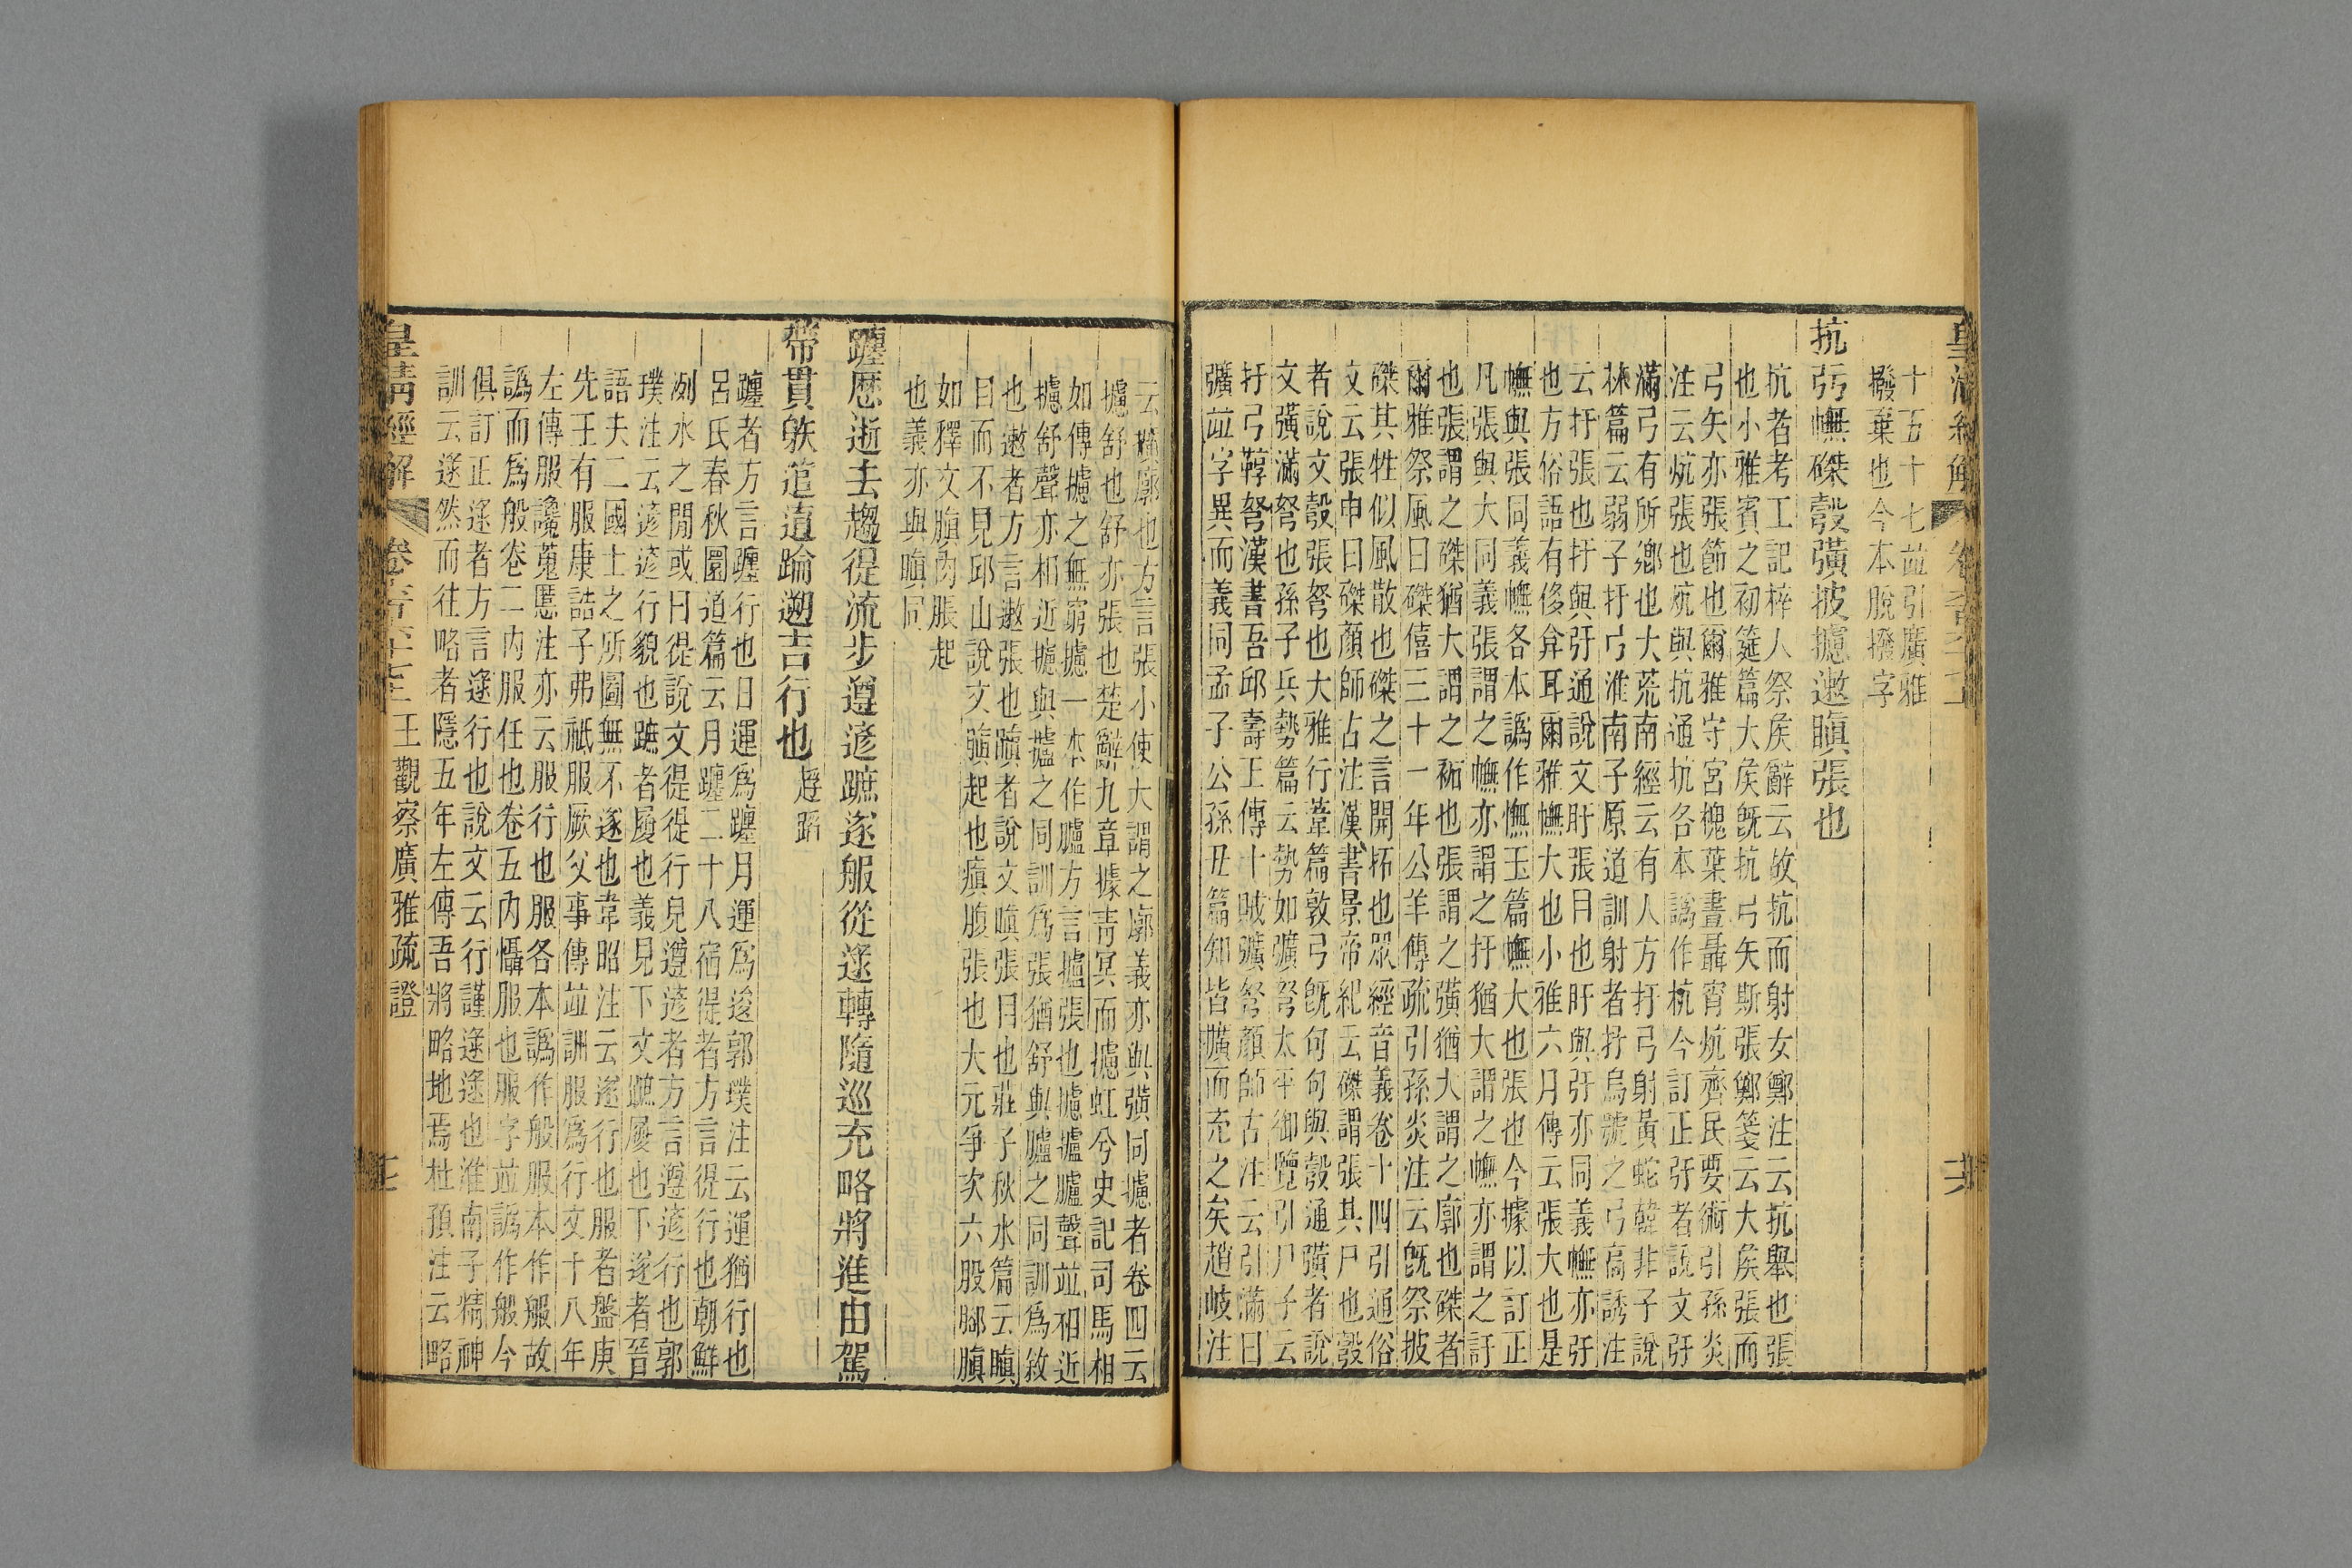 皇清經解
十五十七竝引廣雅
撥棄也今本脫撥字
抗弙幠磔彀彉披攄遬瞋張也
抗者考工記梓人祭矦辭云故抗而射女鄭注云抗舉也張
也小雅賓之初筵篇大矦旣抗弓矢斯張鄭箋云大矦張而
弓矢亦張節也爾雅守宮槐葉晝聶宵炕齊民要術引孫炎
注云炕張也炕與抗通抗各本譌作杭今訂正弙者說文弙
滿弓有所鄉也大荒南經云有人方扜弓射黃蛇韓非子說
林篇云弱子扜弓淮南子原道訓射者扜烏號之弓高誘注
云扜張也扜與弙通說文盱張目也盱與弙亦同義幠亦弙
也方俗語有侈弇耳爾雅幠大也小雅六月傳云張大也是
幠與張同義幠各本譌作憮玉篇幠大也張也今據以訂正
凡張與大同義張謂之幠亦謂之扜猶大謂之幠亦謂之訏
也張謂之磔猶大謂之祏也張謂之彉猶大謂之廓也磔者
爾雅祭風曰磔僖三十一年公羊傳疏引孫炎注云旣祭披
磔其牲似風散也磔之言開拓也眾經音義卷十四引通俗
文云張申曰磔顏師古注漢書景帝紀云磔謂張其尸也彀
者說文彀張弩也大雅行葦篇敦弓旣句句與彀通彉者說
文彉滿弩也孫子兵勢篇云勢如彉弩太平御覽引尸子云
扜弓鞟弩漢書吾邱壽王傳十賊彉弩顏師古注云引滿曰
彉竝字異而義同孟子公孫丑篇知皆擴而充之矣趙岐注
云擴廓也方言張小使大謂之廓義亦與彉同攄者卷四云
攄舒也舒亦張也楚辭九章據青冥而攄虹兮史記司馬相
如傳攄之無窮攄一本作臚方言攎張也攄攎臚聲竝相近
攄舒聲亦相近攄與攎之同訓爲張猶舒與臚之同訓爲敘
也遬者方言遬張也瞋者說文瞋張目也莊子秋水篇云瞋
目而不見邱山說文䐜起也瘨腹張也大元爭次六股腳䐜
如釋文䐜肉脹起
也義亦與瞋同
躔歷逝去趨徥流步遵遃蹠遂服從逯轉隨巡充略將進由駕
帶貫䠶䓛遺踚遡吉行也
躔者方言躔行也日運爲躔月運爲逡郭璞注云運猶行也
呂氏春秋圜道篇云月躔二十八宿徥者方言徥行也朝鮮
洌水之閒或曰徥說文徥徥行皃遵遃者方言遵遃行也郭
璞注云遃遃行貌也蹠者履也義見下文蹠履也下遂者晉
語夫二國士之所圖無不遂也韋昭注云遂行也服者盤庚
先王有服康誥子弗祗服厥父事傳竝訓服爲行文十八年
左傳服讒蒐慝注亦云服行也服各本譌作般服本作舩故
譌而爲般卷二內服任也卷五內懾服也服字竝譌作般今
俱訂正逯者方言逯行也說文云行謹逯逯也淮南子精神
訓云逯然而往略者隱五年左傳吾將略地焉杜預注云略
皇清經解 王觀察廣雅疏證